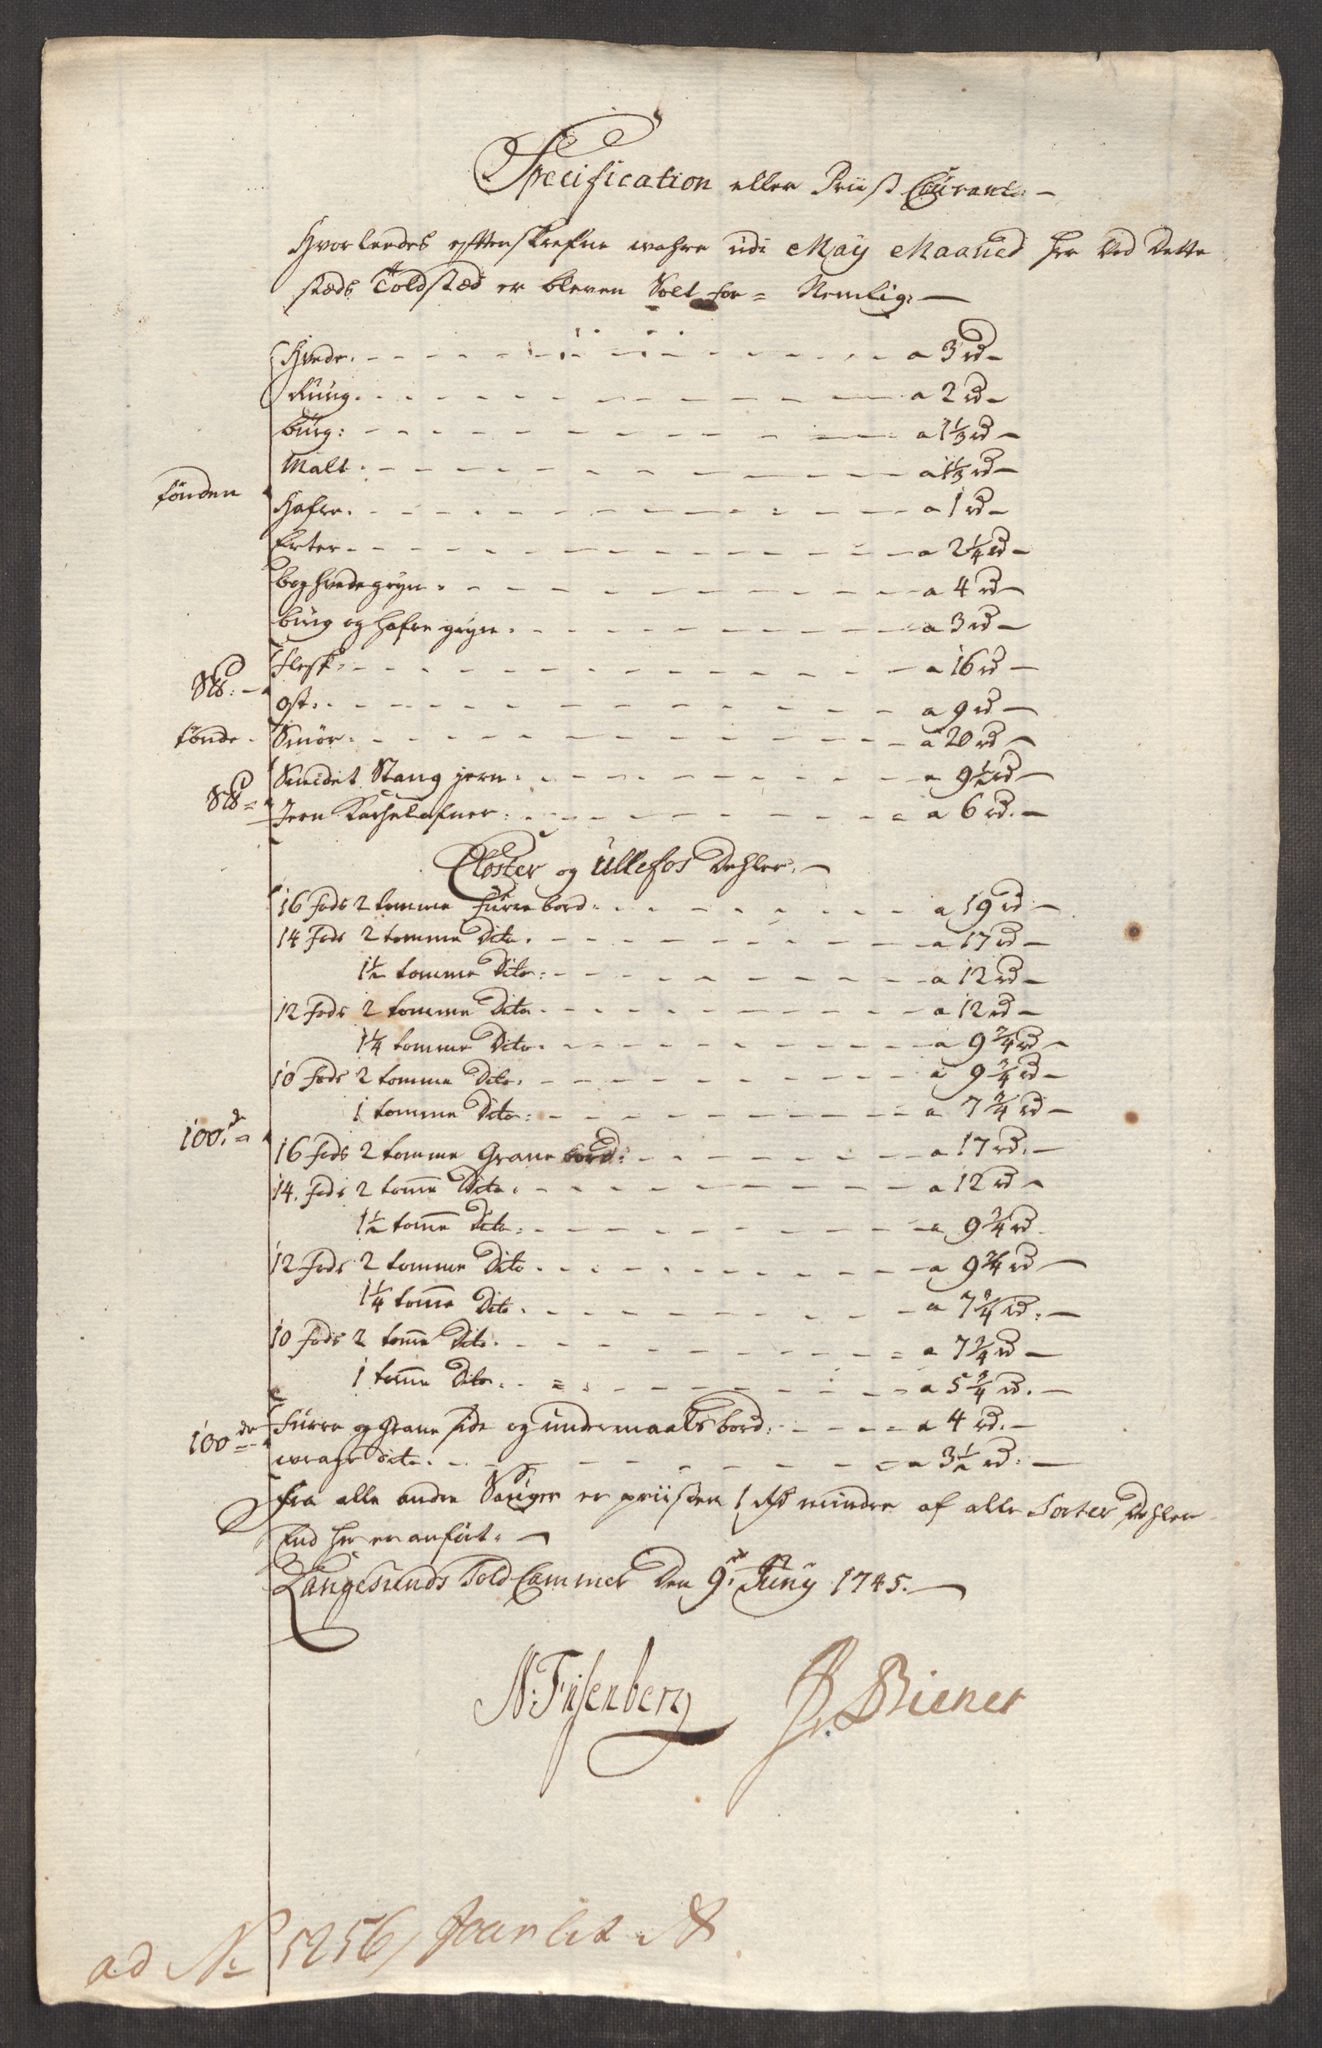 Specification eller Priis Courant
Hvorleedes efterskrefne wahre udi Maÿ Maaned her ved dette
steds Toldsted er bleven Solt for = Nemlig:
Hvede. a 3 rd
Rüug. a 2 rd
büg: a 1 1/3 rd
Malt. a 1 1/3 rd
tönden
Hafre. a 1 rd
Erter a 2 1/4 rd
boghvedegryn. a 4 rd
büg og hafre gryn. a 3 rd
Flesk a 16 rd
S℔:
Ost: a 9 rd
tönde Smör a 20 rd
Smidet Stang jern. a 9 1/2 rd
S℔
Jern Kachelofner: a 6 rd.
Closter og Ullefos Dehler.
16 fods 2 tomme fürre bord: a 19 rd
14 fods 2 tomme dito. a 17 rd
1 1/2 tomme dito: a 12 rd
12 fods 2 tomme dito a 12 rd
1 1/4 tomme dito. a 9 3/4 rd
10 fods 2 tomme dito. a 9 3/4 rd
1 tomme dito: a 7 3/4 rd
100de
16 fods 2 tomme Grane bord: a 17 rd.
14. fods 2 tom̄e dito. a 12 rd
1 1/2 tom̄e dito. a 9 3/4 rd.
12 fods 2 tomme dito. a 9 3/4 rd
1 1/4 tom̄e dito. a 7 3/4 rd:
10 fods 2 tom̄e dito. a 7 3/4 rd
1 tom̄e dito. a 5 3/4 rd.
100de fürre og grane side og undermaals bord: a 4 rd.
wrage dito. a 3 1/2 rd:
Fra alle andre Sauger er priisen 1 rd mindre af alle Sorter Dehler
End her er anfört.
Langesunds Told Cammer den 9de Junÿ 1745.
N: Fisenberg
Biener
ad No 5256